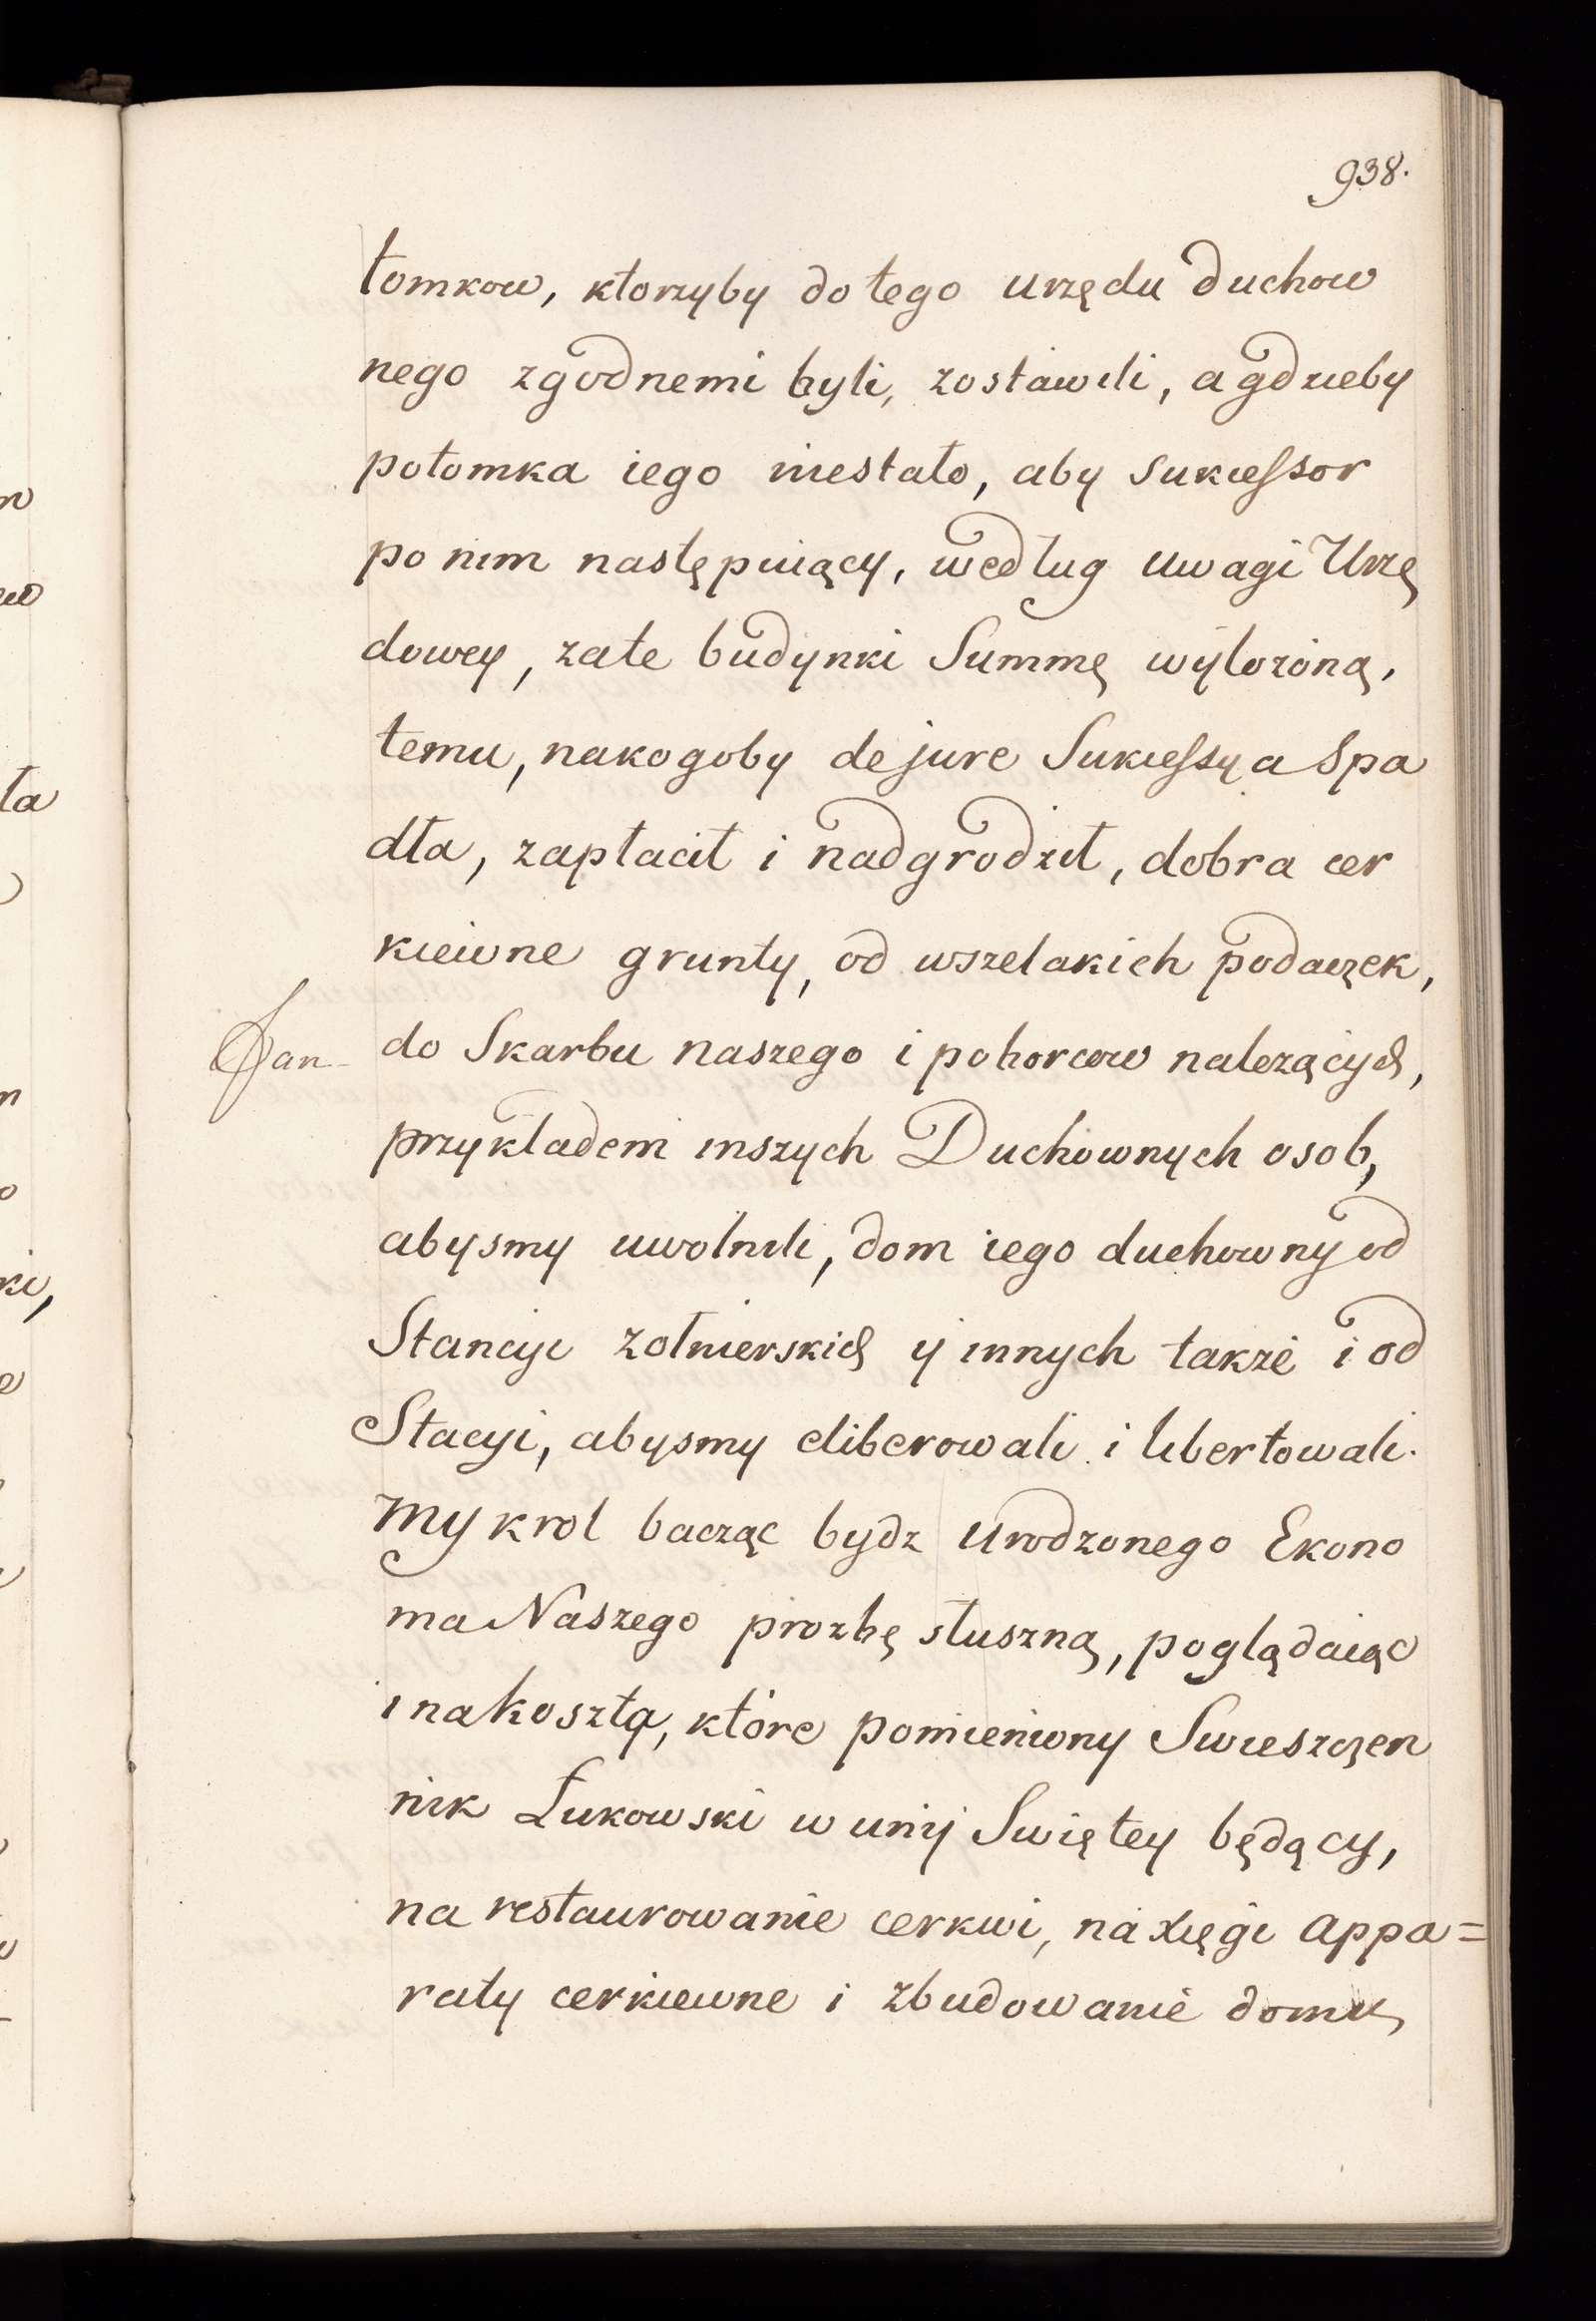 938.
tomkow, ktorzyby do tego urzędu duchow
nego zgodnemi byli, zostawili, a gdzieby
potomka iego niestało, aby sukcessor
po nim następuiący, według uwagi Urzę
dowey, za te budynki Summę wyłożoną,
temu, na kogoby de jure Sukcessya Spa
dła, zapłacił i nadgrodził, dobra cer
kiewne grunty, od wszelakich podaczek,
Jan
do Skarbu naszego i poborcow nalezących,
przykładem inszych Duchownych osob,
abysmy uwolnili, dom iego duchowny od
Stancyi zołnierskich y innych takze i od
Stacyi, abysmy eliberowali i libertowali.
My krol bacząc bydz Urodzonego Ekono
ma Naszego prozbę słuszną, poglądaiąc
i na koszta, które pomieniony Swieszczen
nik Łukowski w unij Swiętey będący,
na restaurowanie cerkwi, na xięgi appa=
raty cerkiewne i zbudowanie domu,